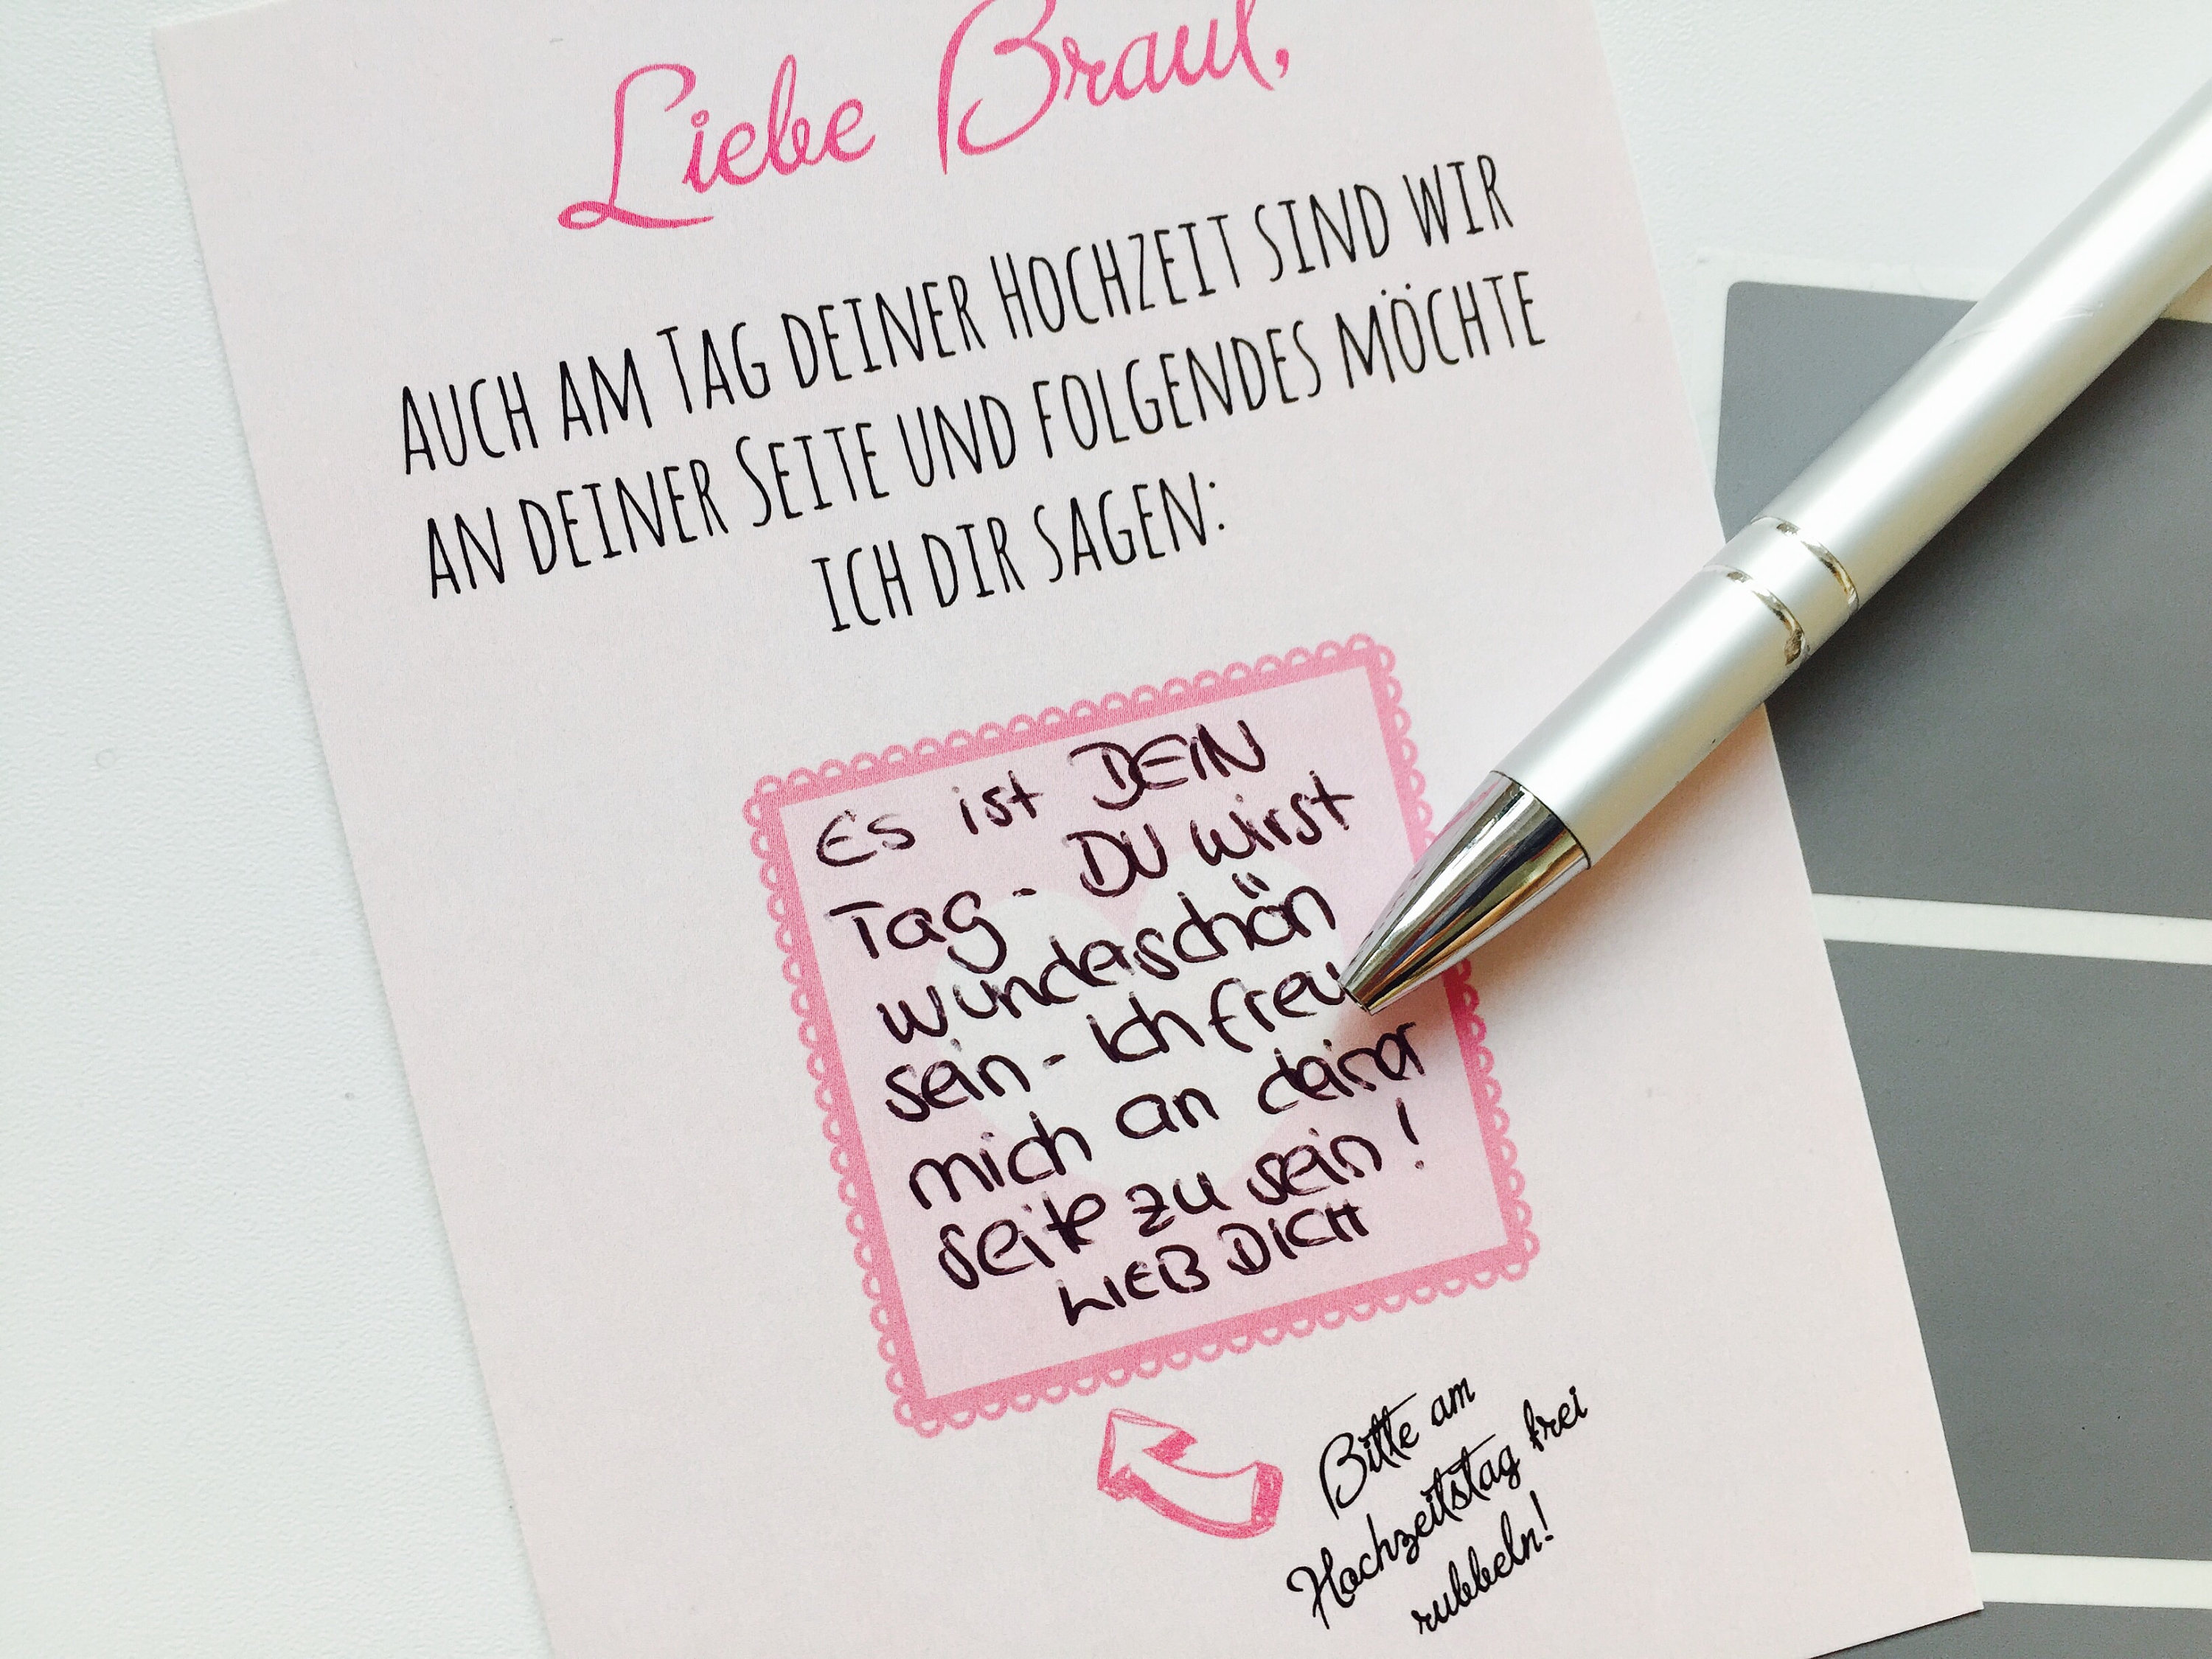 Liebe Braut,
Auch am Tag deiner Hochzeit sind wir
an deiner Seite und folgendes möchte
ich dir sagen:
Es ist DEIN
Tag - DU wirst
wunderschön
sein - ich freu
mich an deiner
Seite zu sein!
LIEB DICH
Bitte am
Hochzeitstag frei
rubbeln!